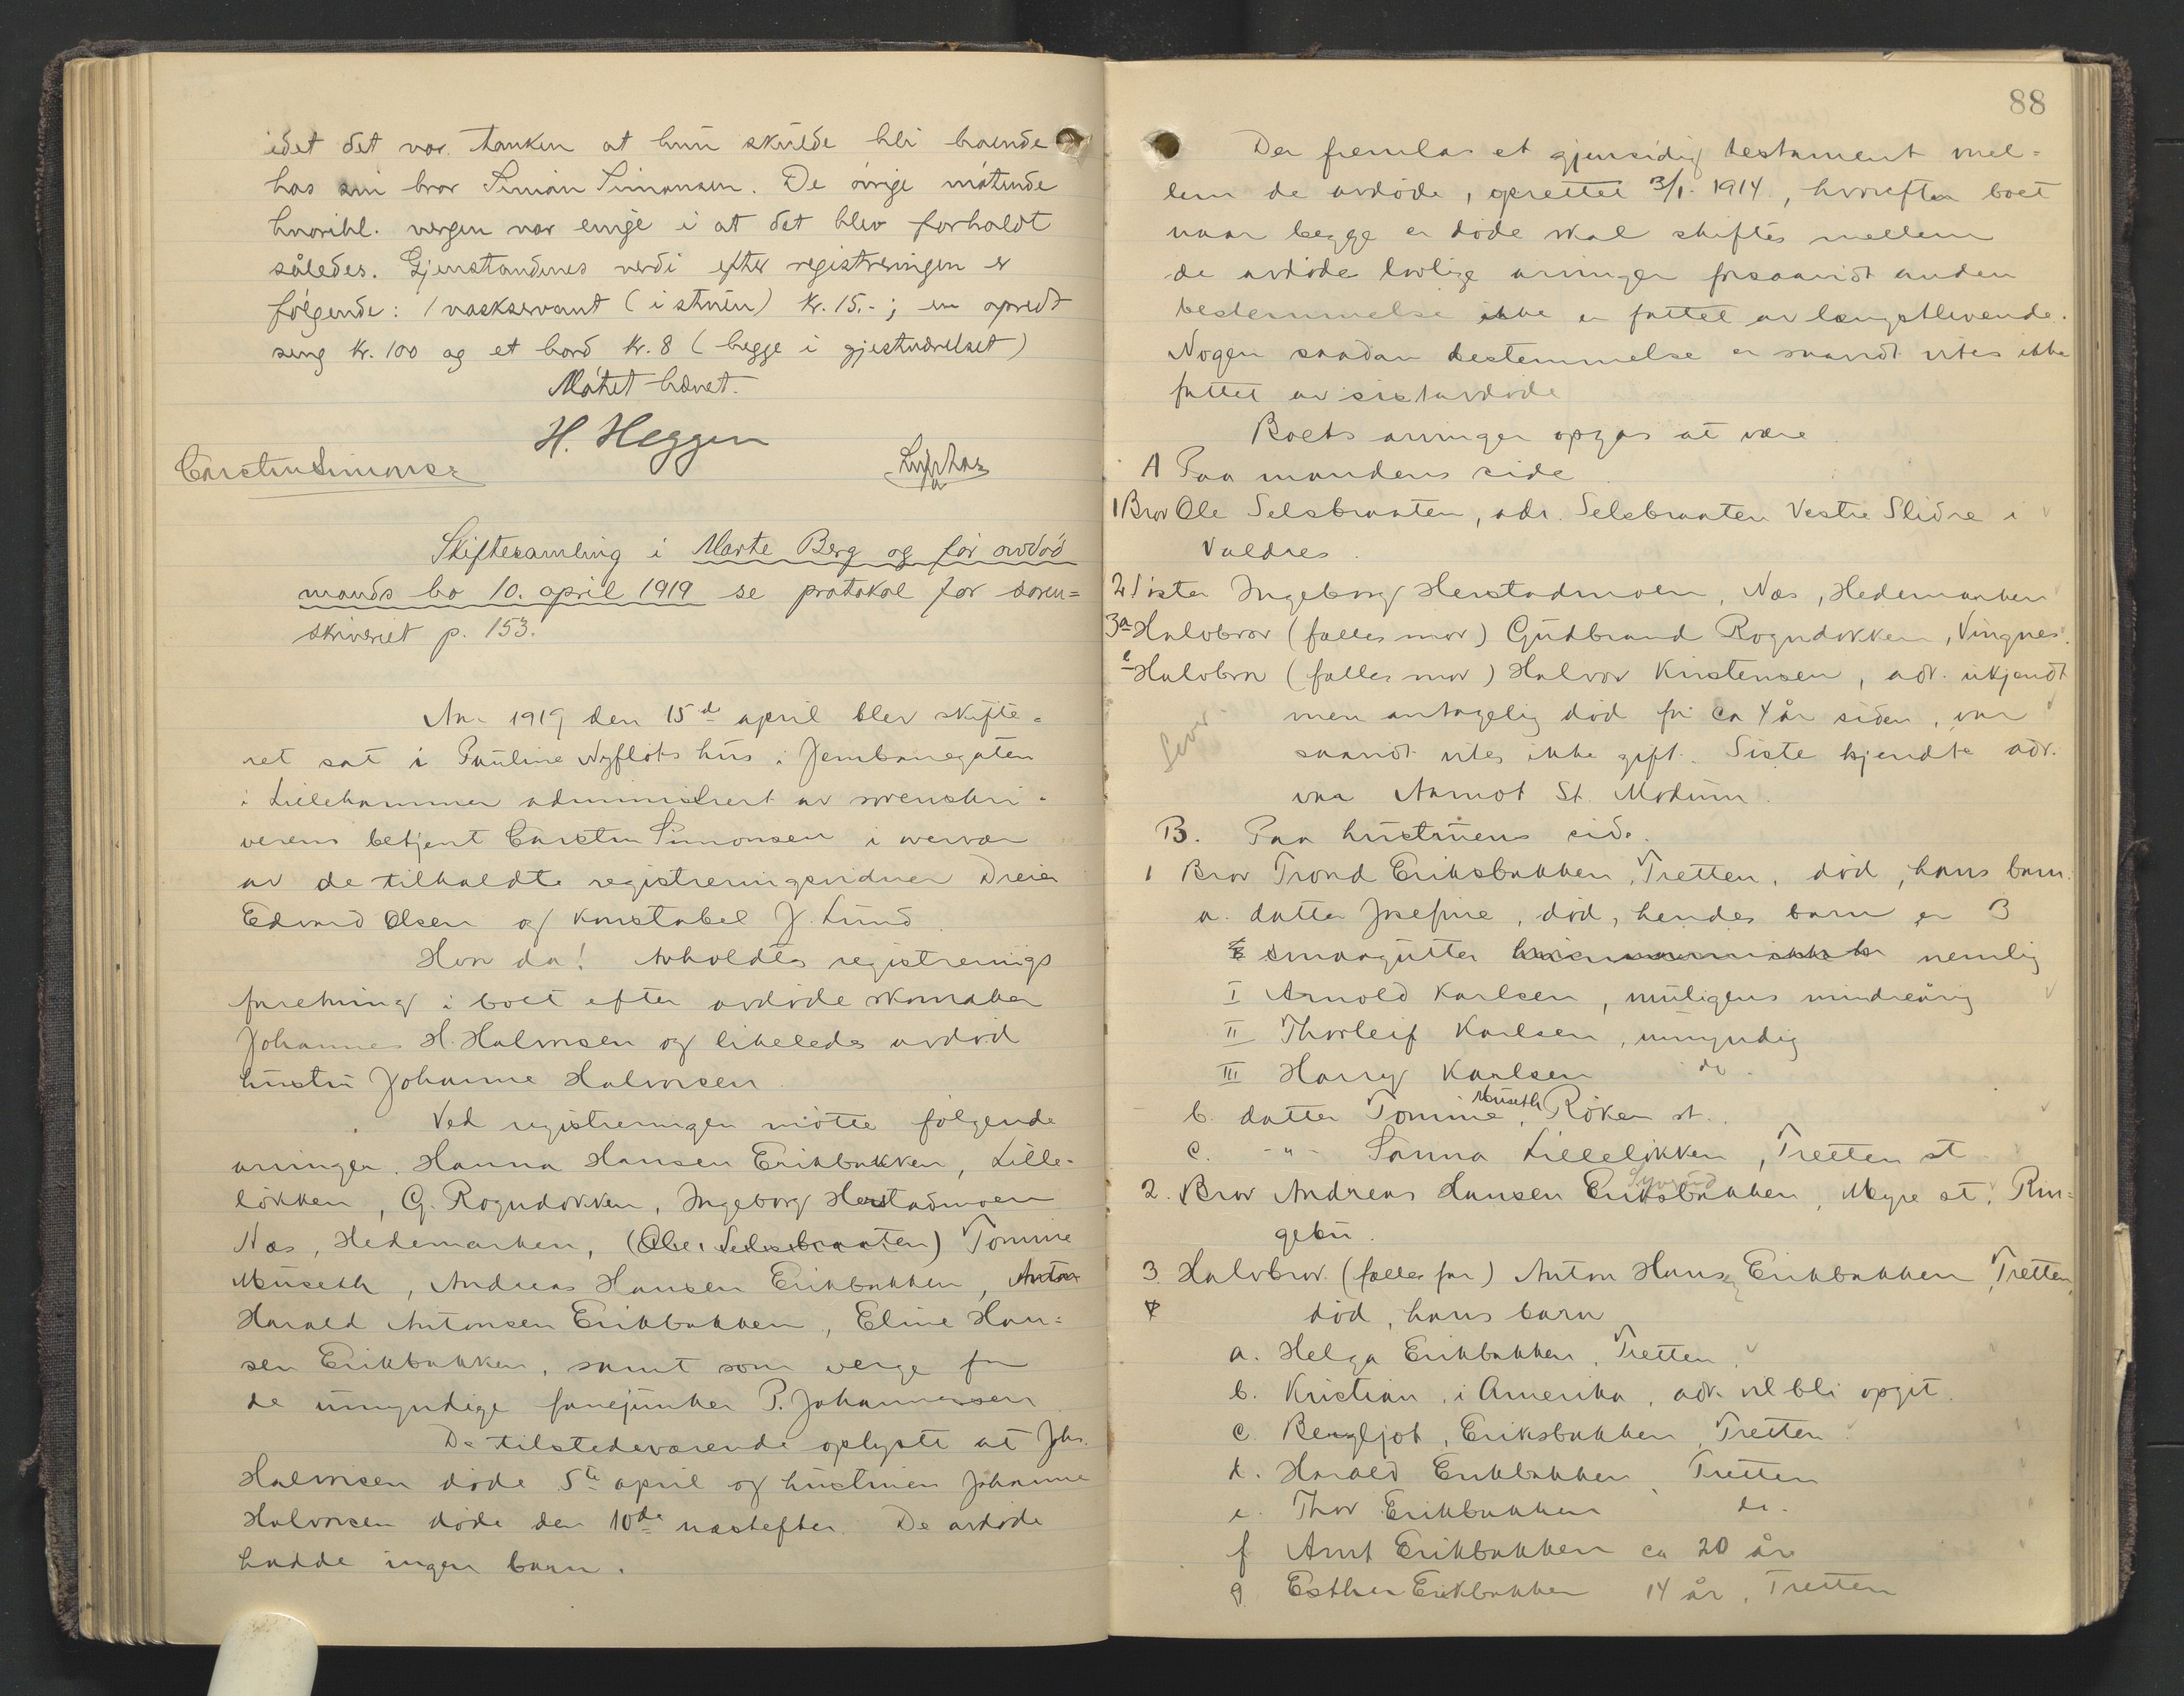 idet det var tanken at hun skulde bli boende
hos sin bror Simon Simonsen. De övrige mötende
hvoribl. vergen var enige i at det blev forholdt
således. Gjenstandenes verdi efter registreringen er
følgende: 1 vaskservant (i stuen) kr. 15.-; en opredt
seng kr. 100 og et bord kr. 8 (begge i gjestværelset)
Mötet hævet.
H. Heggen
Carsten Simonsen
Skiftesamling i Marte Berg og før avdöd
mands bo 10. april 1919 se protokol for soren=
skriveriet p. 153.
Aar 1919 den 15de april blev skifte=
ret sat i Pauline Nyflots hus i Jernbanegaten
i Lillehammer administrert av sorenskri=
verens betjent Carsten Simonsen i overvær
av de tilkaldte registreringsvidner Dreier
Edvard Olsen og konstabel J. Lund.
Hvor da! Avholdtes registrerings
forretning i boet efter avdøde skomaker
Johannes H. Halvorsen og likeledes avdød
hustru Johanne Halvorsen.
Ved registreringen mötte følgende
arvinger. Hanna Hansen Erikbakken, Lille=
løkken, G. Rogndokken, Ingeborg Herstadmoen
Næs, Hedemarken, (Ole Selsbraaten) Tomine
Museth, Andreas Hansen Erikbakken, Anton
Harald Antonsen Erikbakken, Eline Han=
sen Erikbakken, samt som verge for
de umyndige fanejunker P. Johannessen
De tilstedeværende oplyste at Johs.
Halvorsen døde 5te april og hustruen Johanne
Halvorsen døde den 10de næstefter. De avdøde
hadde ingen barn.
88
Der fremlas et gjensidig testament mel=
lem de avdøde, oprettet 3/1. 1914, hvorefter boet
naar begge er døde skal skiftes mellem
de avdødes lovlige arvinger forsaavidt anden
bestemmelse ikke er fattet av længstlevende.
Nogen saadan bestemmelse er saavidt vites ikke
fattet av sistavdøde
Boets arvinger opgas at være
A Paa mandens side
1 Bror Ole Selsbraaten, adr. Selsbraaten Vestre Slidre i
Valdres.
2 Söster Ingeborg Herstadmoen, Næs, Hedemarken
3a Halvbror (fælles mor) Gudbrand Rogndokken, Vingnes.
b Halvbror (fælles mor) Halvor Kristensen, adr. ukjendt
men antagelig død for ca 4 år siden, var
lever
saavidt vites ikke gift. Siste kjendte adr.
var Aamot St. Modum.
B. Paa hustruens side.
1 Bror Trond Eriksbakken, Tretten, död, hans barn:
a. datter Josefine, död, hendes barn er 3
smaagutter nemlig
I Arnold Karlsen, muligens mindreårig
II Thorleif Karlsen, umyndig
III Harry Karlsen do.
b. datter Tomine Museth, Röken st.
c. -"- Sanna Lilleløkken, Tretten st
2. Bror Andreas Hansen Eriksbakken, Myre st. Rin=
gebu.
3 Halvbror (fælles far) Anton Hansen Erikbakken, Tretten
död, hans barn
a. Helga Erikbakken, Tretten.
b. Kristian, i Amerika, adr. vil bli opgit.
c. Bergljot, Eriksbakken, Tretten
d. Harald Erikbakken, Tretten
e. Thor Erikbakken do.
f Arnt Erikbakken ca 20 år
g Esther Erikbakken 14 år, Tretten